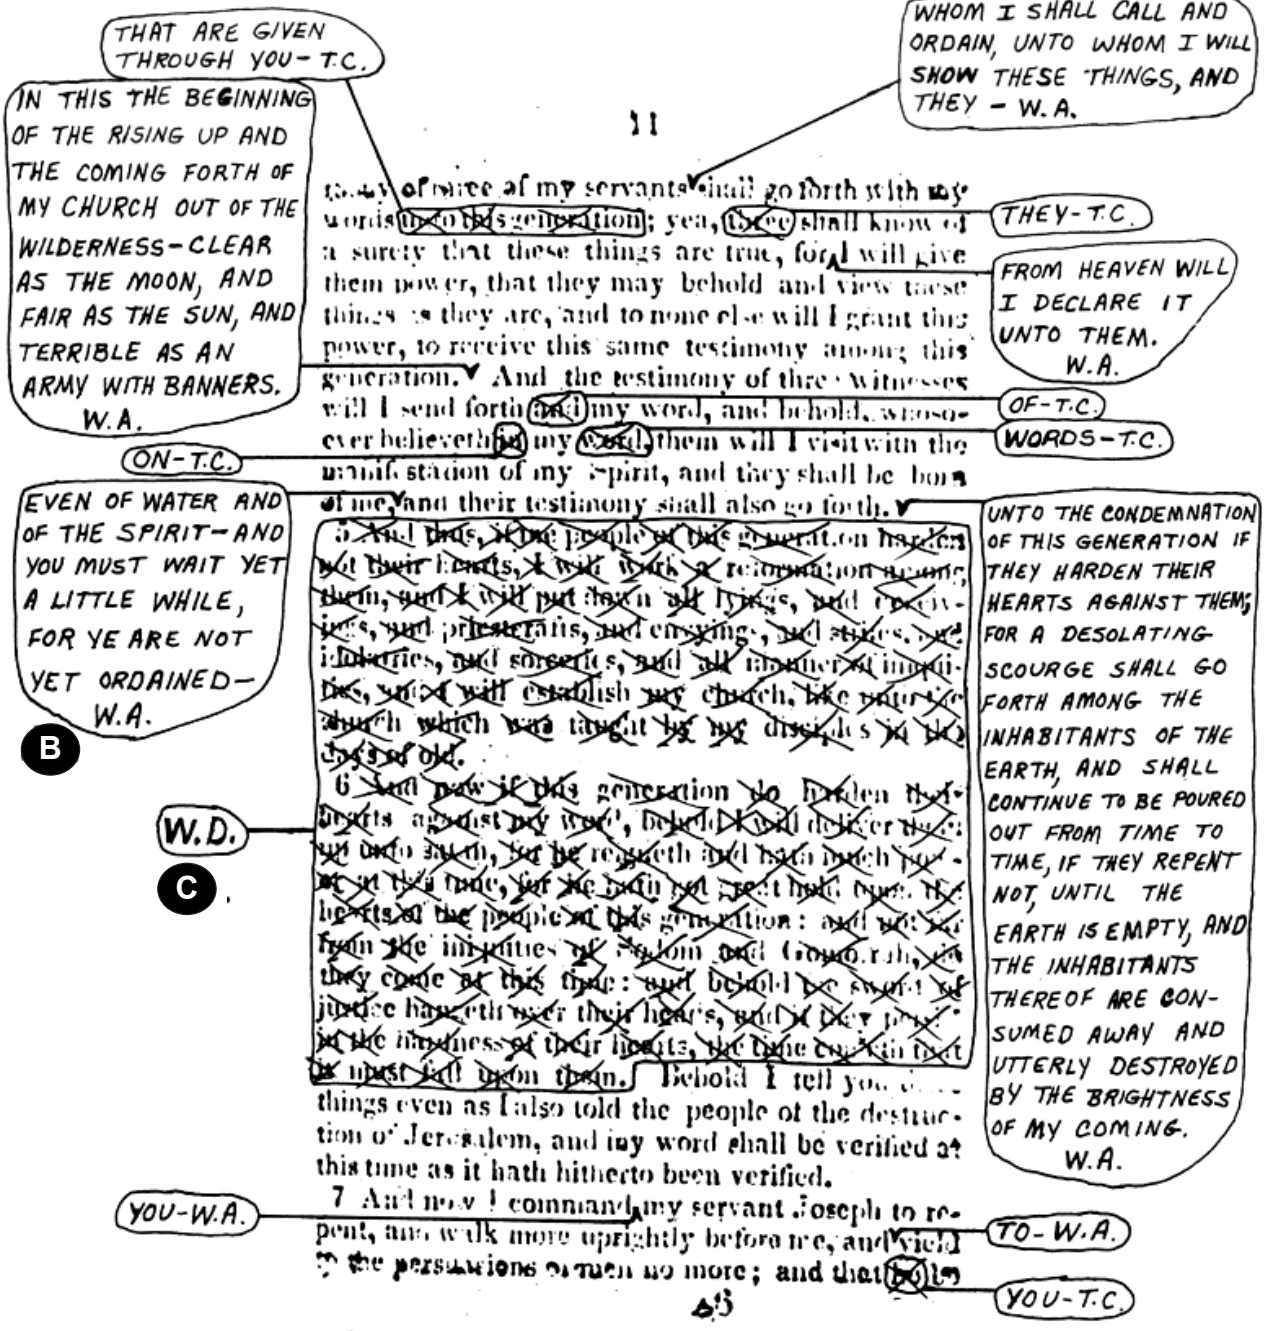 THAT ARE GIVEN
THROUGH YOU - T.C.
WHOM I SHALL CALL AND
ORDAIN, UNTO WHOM I WILL
SHOW THESE THINGS, AND
THEY - W.A.
IN THIS THE BEGINNING
OF THE RISING UP AND
THE COMING FORTH OF
MY CHURCH OUT OF THE
WILDERNESS - CLEAR
AS THE MOON, AND
FAIR AS THE SUN, AND
TERRIBLE AS AN
ARMY WITH BANNERS.
W.A.
ON - T.C.
EVEN OF WATER AND
OF THE SPIRIT - AND
YOU MUST WAIT YET
A LITTLE WHILE,
FOR YE ARE NOT
YET ORDAINED -
W.A.
B
W.D.
C
YOU - W.A.
11
of my servants shall go forth with my
words unto this generation; yea, three shall know of
a surety that these things are true, for I will give
them power, that they may behold and view these
things as they are, and to none else will I grant this
power, to receive this same testimony among this
generation. And the testimony of three witnesses
will I send forth and my word, and behold, whoso-
ever believeth in my word, them will I visit with the
manifestation of my Spirit, and they shall be born
of me, and their testimony shall also go forth.
5 And thus, if the people of this generation harden
not their hearts, I will work a reformation among
them, and I will put down all lyings, and deceiv-
ings, and priestcrafts, and envyings, and strifes, and
idolatries, and sorceries, and all manner of iniqui-
ties, and I will establish my church, like unto the
church which was taught by my disciples in the
days of old.
6 And now if this generation do harden their
hearts against my word, behold I will deliver them
up unto satan, for he reigneth and hath much pow-
er at this time, for he hath got great hold upon the
hearts of the people of this generation: and not far
from the iniquities of Sodom and Gomorrah, do
they come at this time: and behold the sword of
justice hangeth over their heads, and if they persist
in the hardness of their hearts, the time cometh that
it must fall upon them. Behold I tell you these
things even as I also told the people of the destruc-
tion of Jerusalem, and my word shall be verified at
this time as it hath hitherto been verified.
7 And now I command my servant Joseph to re-
pent, and walk more uprightly before me, and yield
to the persuasions of men no more; and that he be
THEY - T.C.
FROM HEAVEN WILL
I DECLARE IT
UNTO THEM.
W.A.
OF - T.C.
WORDS - T.C.
UNTO THE CONDEMNATION
OF THIS GENERATION IF
THEY HARDEN THEIR
HEARTS AGAINST THEM;
FOR A DESOLATING
SCOURGE SHALL GO
FORTH AMONG THE
INHABITANTS OF THE
EARTH, AND SHALL
CONTINUE TO BE POURED
OUT FROM TIME TO
TIME, IF THEY REPENT
NOT, UNTIL THE
EARTH IS EMPTY, AND
THE INHABITANTS
THEREOF ARE CON-
SUMED AWAY AND
UTTERLY DESTROYED
BY THE BRIGHTNESS
OF MY COMING.
W.A.
TO - W.A.
YOU - T.C.